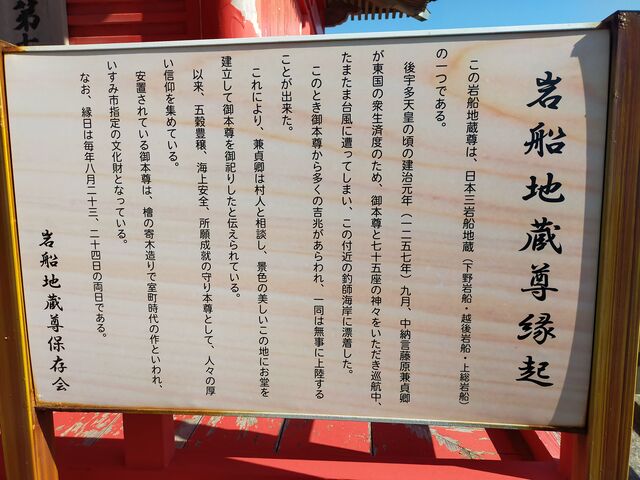 岩船地蔵尊縁起
この岩船地蔵尊は、日本三岩船地蔵(下野岩船・越後岩船・上総岩船)
の一つである。
後宇多天皇の頃の建治元年(一二五七年)九月、中納言藤原兼貞卿
が東国の衆生済度のため、御本尊と七十五座の神々をいただき巡航中、
たまたま台風に遭ってしまい、この付近の釣師海岸に漂着した。
このとき御本尊から多くの吉兆があらわれ、一同は無事に上陸する
ことが出来た。
これにより、兼貞卿は村人と相談し、景色の美しいこの地にお堂を
建立して御本尊を御祀りしたと伝えられている。
以来、五穀豊穣、海上安全、所願成就の守り本尊として、人々の厚
い信仰を集めている。
安置されている御本尊は、檜の寄木造りで室町時代の作といわれ、
いすみ市指定の文化財となっている。
なお、縁日は毎年八月二十三、二十四日の両日である。
岩船地蔵尊保存会